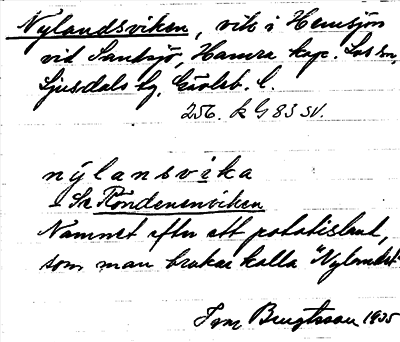 Nylandsviken, vik i Hemsjön
vid Sandsjö, Hamra kap. 
Ljusdals tg, Gävleb. l.
256. k G 83 SV.
nýlansvika
Se Röndenenviken
Namnet efter ett potatisland,
som man brukar kalla "Nylandet
Bengtsson 1935